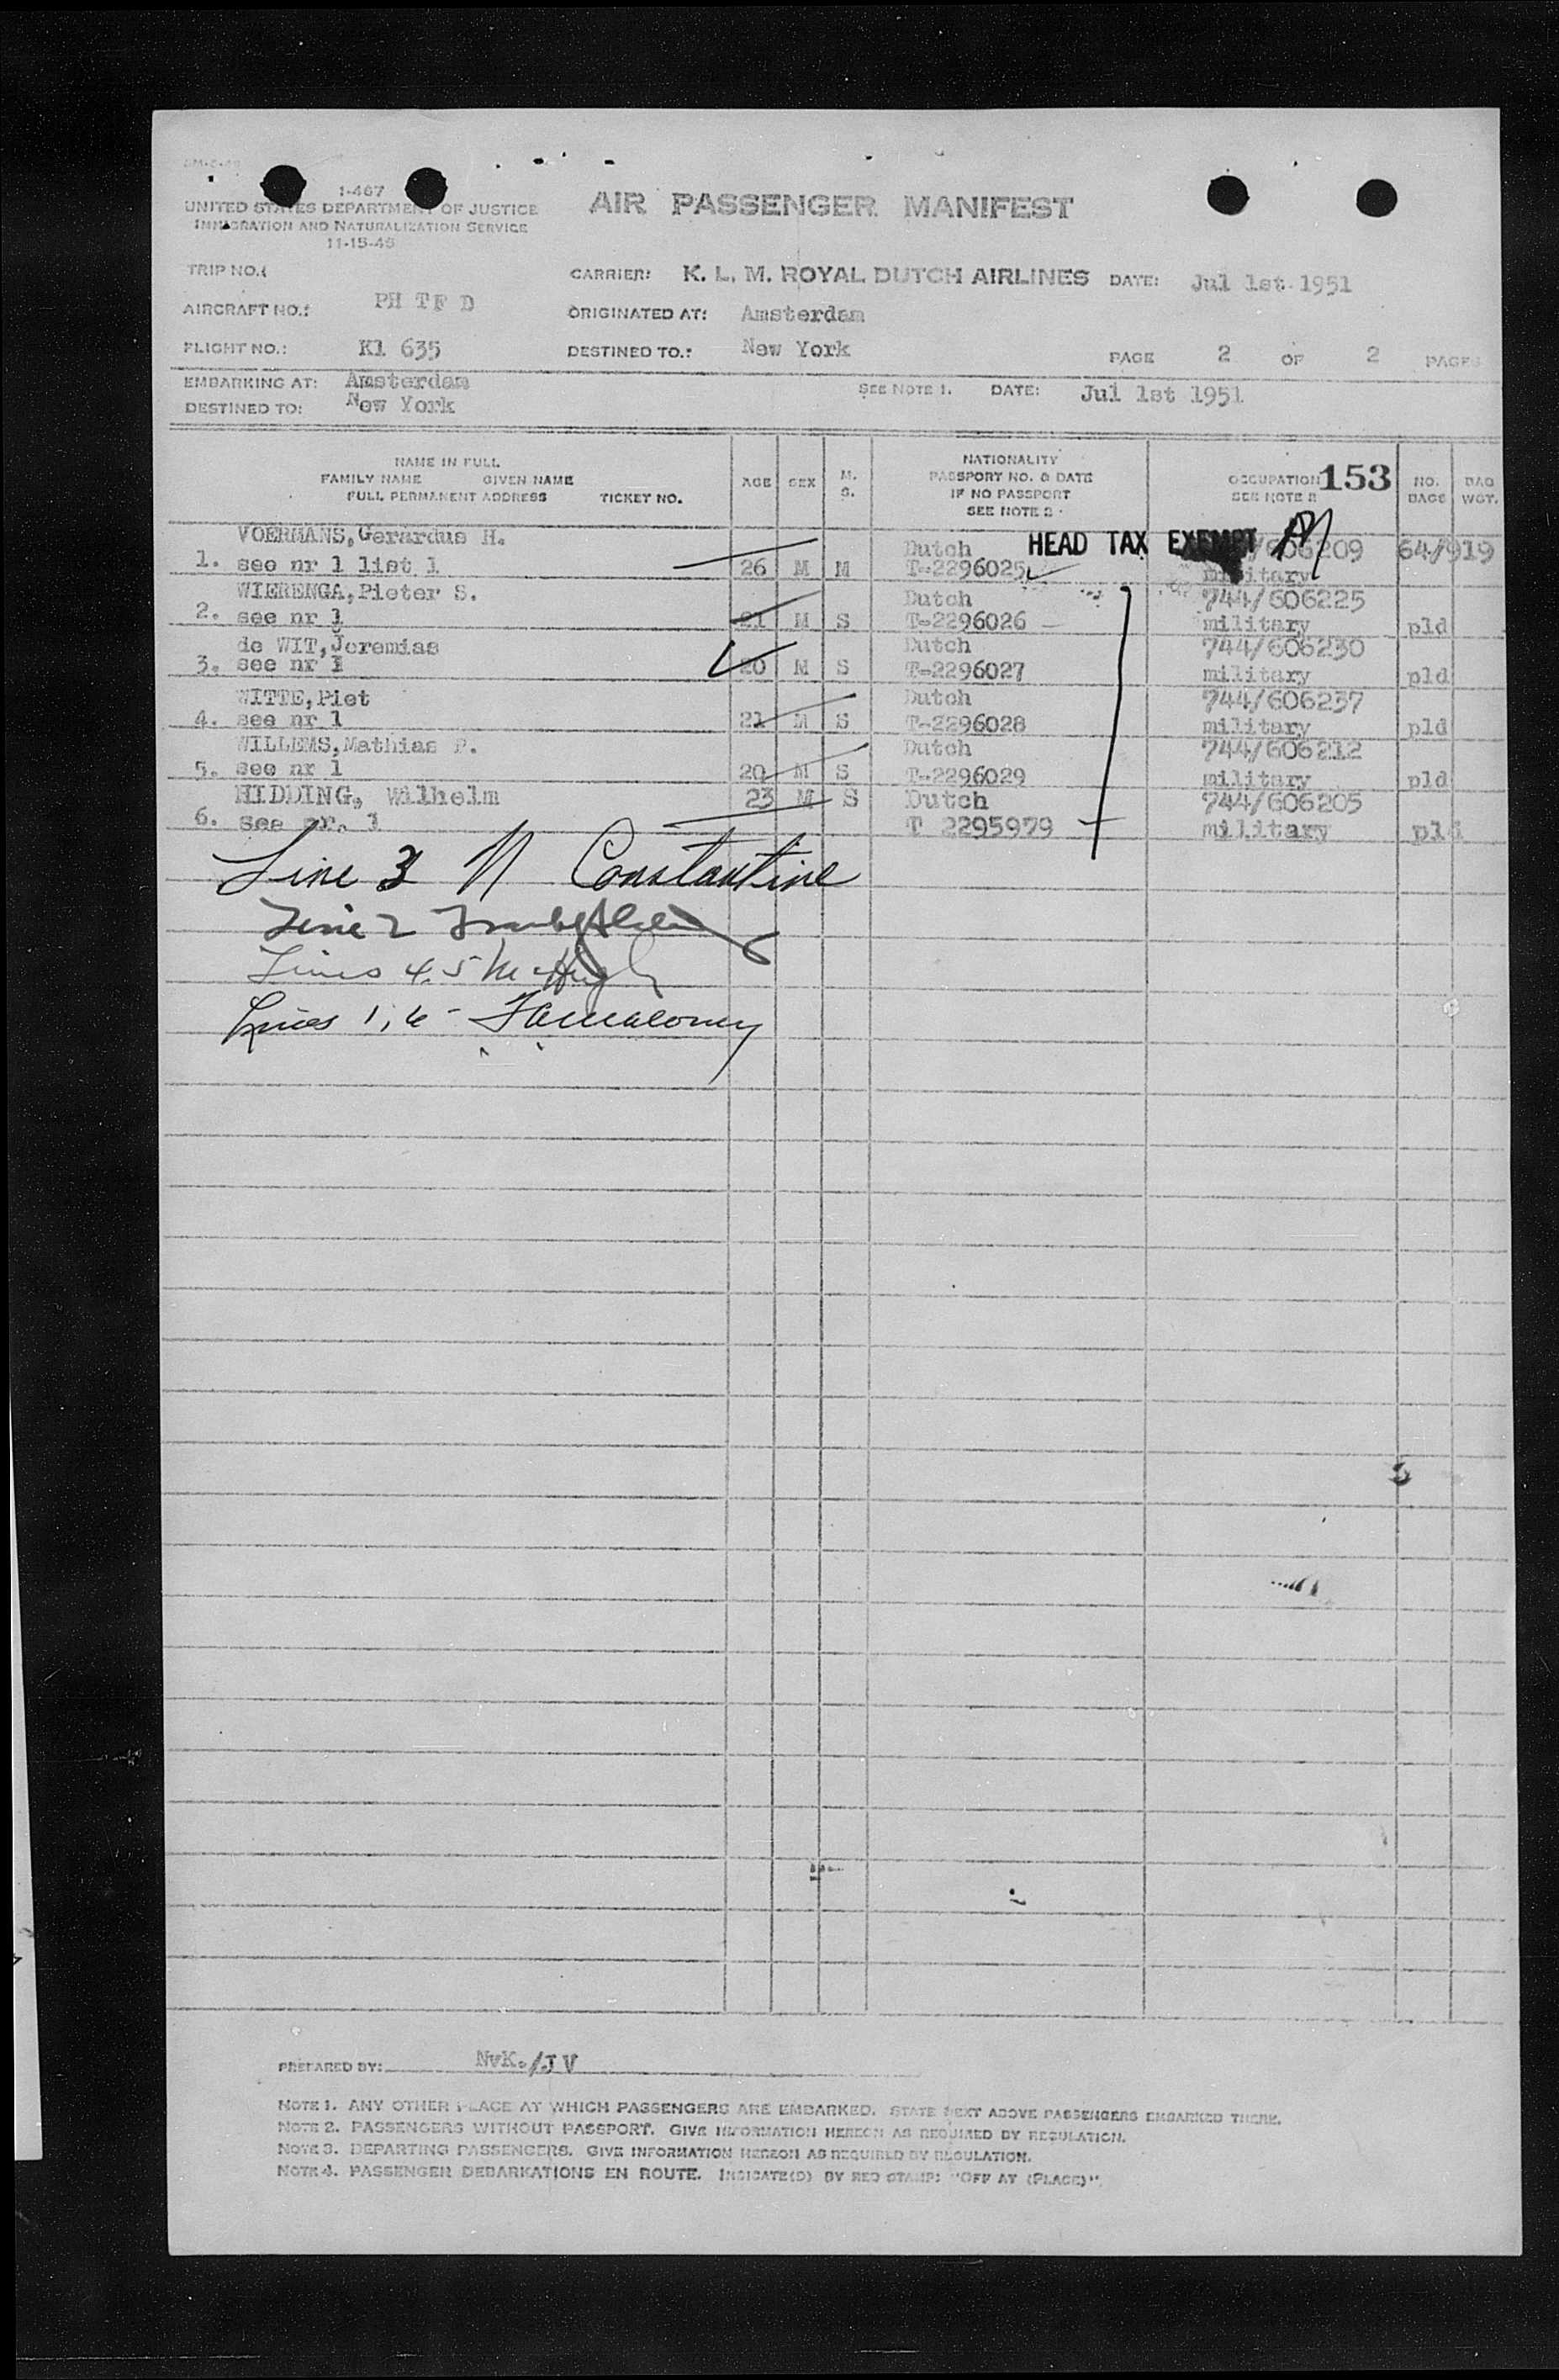 1-467
UNITED STATES DEPARTMENT OF JUSTICE
IMMIGRATION AND NATURALIZATION SERVICE
AIR PASSENGER MANIFEST
TRIP NO.:
CARRIER: K. L. M. ROYAL DUTCH AIRLINES DATE: Jul 1st 1951
AIRCRAFT NO.: PH TF D
ORIGINATED AT: Amsterdam
FLIGHT NO.: Kl 635
DESTINED TO.: New York
PAGE 2 OF 2 PAGES
EMBARKING AT: Amsterdam
SEE NOTE 1. DATE: Jul 1st 1951
DESTINED TO: New York
NAME IN FULL
FAMILY NAME GIVEN NAME
FULL PERMANENT ADDRESS TICKET NO.
AGE SEX M. S.
NATIONALITY
PASSPORT NO. & DATE
IF NO PASSPORT
SEE NOTE 2
OCCUPATION 153
SEE NOTE 2
NO. BAGS
BAG WGT.
HEAD TAX EXEMPT
VOERMANS, Gerardus H. Dutch /606209 64/919
1. see nr 1 list 1 26 M M T-2296025 military
WIERENGA, Pieter S. Dutch 744/606225
2. see nr 1 21 M S T-2296026 military pld
de WIT, Jeremias Dutch 744/606230
3. see nr 1 20 M S T-2296027 military pld
WITTE, Piet Dutch 744/606237
4. see nr 1 21 M S T-2296028 military pld
WILLEMS, Mathias P. Dutch 744/606212
5. see nr 1 20 M S T-2296029 military pld
HIDDING, Wilhelm 23 M S Dutch 744/606205
6. see nr. 1 T 2295979 military pld
Line 3 N Constantine
Line 2
Lines 4,5 McHugh
Lines 1, 6 - Maloney
PREPARED BY: NvK./JV
NOTE 1. ANY OTHER PLACE AT WHICH PASSENGERS ARE EMBARKED. STATE NEXT ABOVE PASSENGERS EMBARKED THERE.
NOTE 2. PASSENGERS WITHOUT PASSPORT. GIVE INFORMATION HEREON AS REQUIRED BY REGULATION.
NOTE 3. DEPARTING PASSENGERS. GIVE INFORMATION HEREON AS REQUIRED BY REGULATION.
NOTE 4. PASSENGER DEBARKATIONS EN ROUTE. INDICATE(D) BY RED STAMP: "OFF AT (PLACE)".